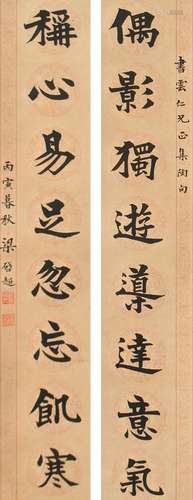 書雲仁兄正集陶句
偶影獨遊導達意氣
稱心易足忽忘飢寒
丙寅暮秋梁啓超